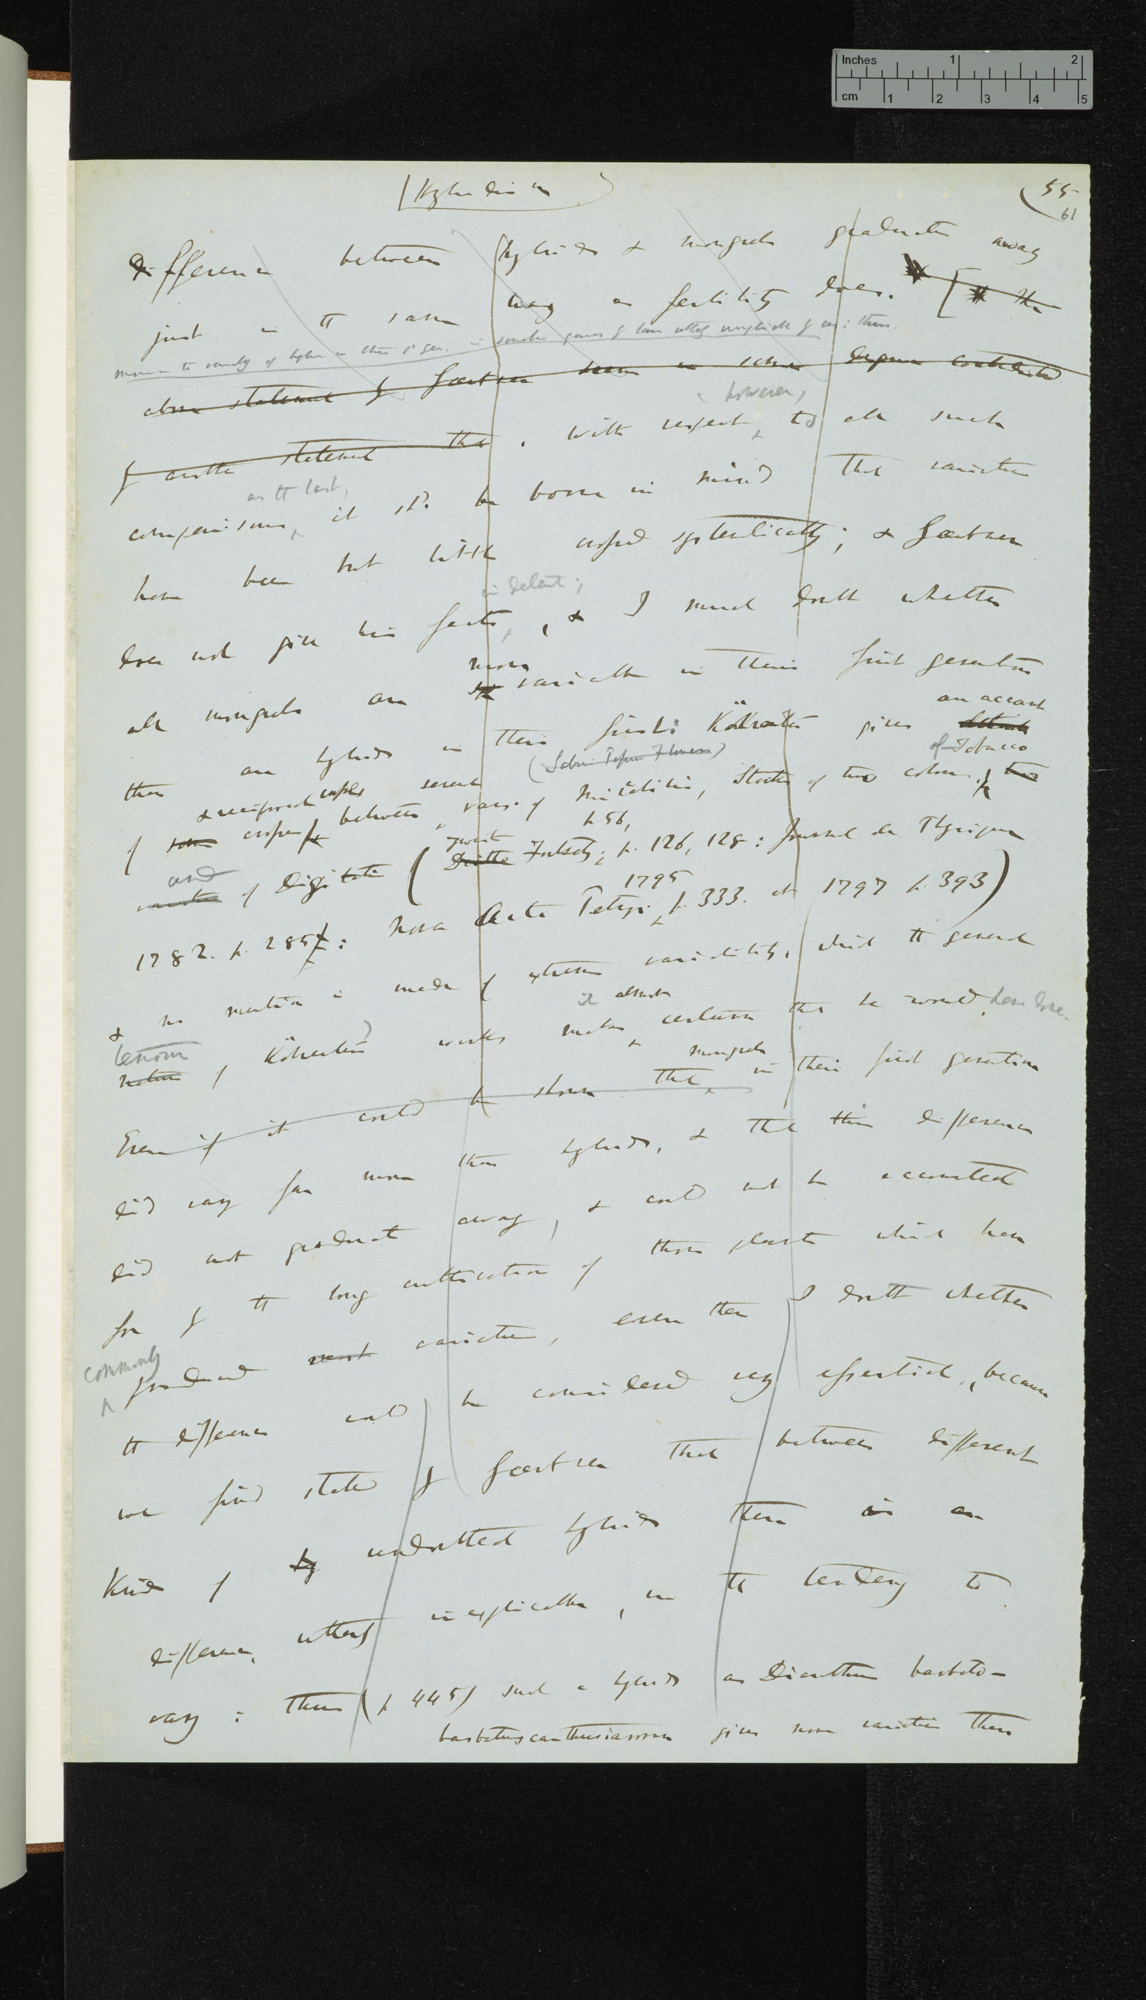 (Hybridism)
55
61
difference between hybrids & mongrels graduates away
just in tt same way as fertility does. [ The
above statement of Gærtner seem in some degree contradicted
however,
of another statement that. With respect, to all such
as tt last,
comparisons, it shd. be borne in mind that varieties
have been but little crossed systematically; & Gærtner
in detail;
does not give his facts, & I much doubt whether
more
all mongrels are variable in their first generation
an account
than are hybrids in their first: Kölreuter gives details
of Tobacco
& reciprocal crosses several
of some crosses between vars: of Mirabilis, Stocks of two colours,
and
varieties of Digitalis ( Zweite Dritte Fortsetz; p. 56, p. 126, 128: Journal de Physique
1795
1782. p. 285: Nova Acta Petrop: p. 333. & 1797 p. 393)
& no mention is made of extreme variability, which tt general
tenour it almost
nature of Kölreuter works makes certain that he would have done.
mongrels
Even if it could be shown that in their first generation
did vary far more than hybrids, & that this difference
did not graduate away, & could not be accounted
for by tt long cultivation of those plants which have
commonly
produced most varieties, even then I doubt whether
tt difference could be considered very essential, because
we find stated by Gærtner that between different
kinds of hy undoubted hybrids there is an
difference, utterly inexplicable, in tt tendency to
vary: thus (p 445) such a hybrid as Dianthus barbato-
barbatus carthusianorum gives more varieties than